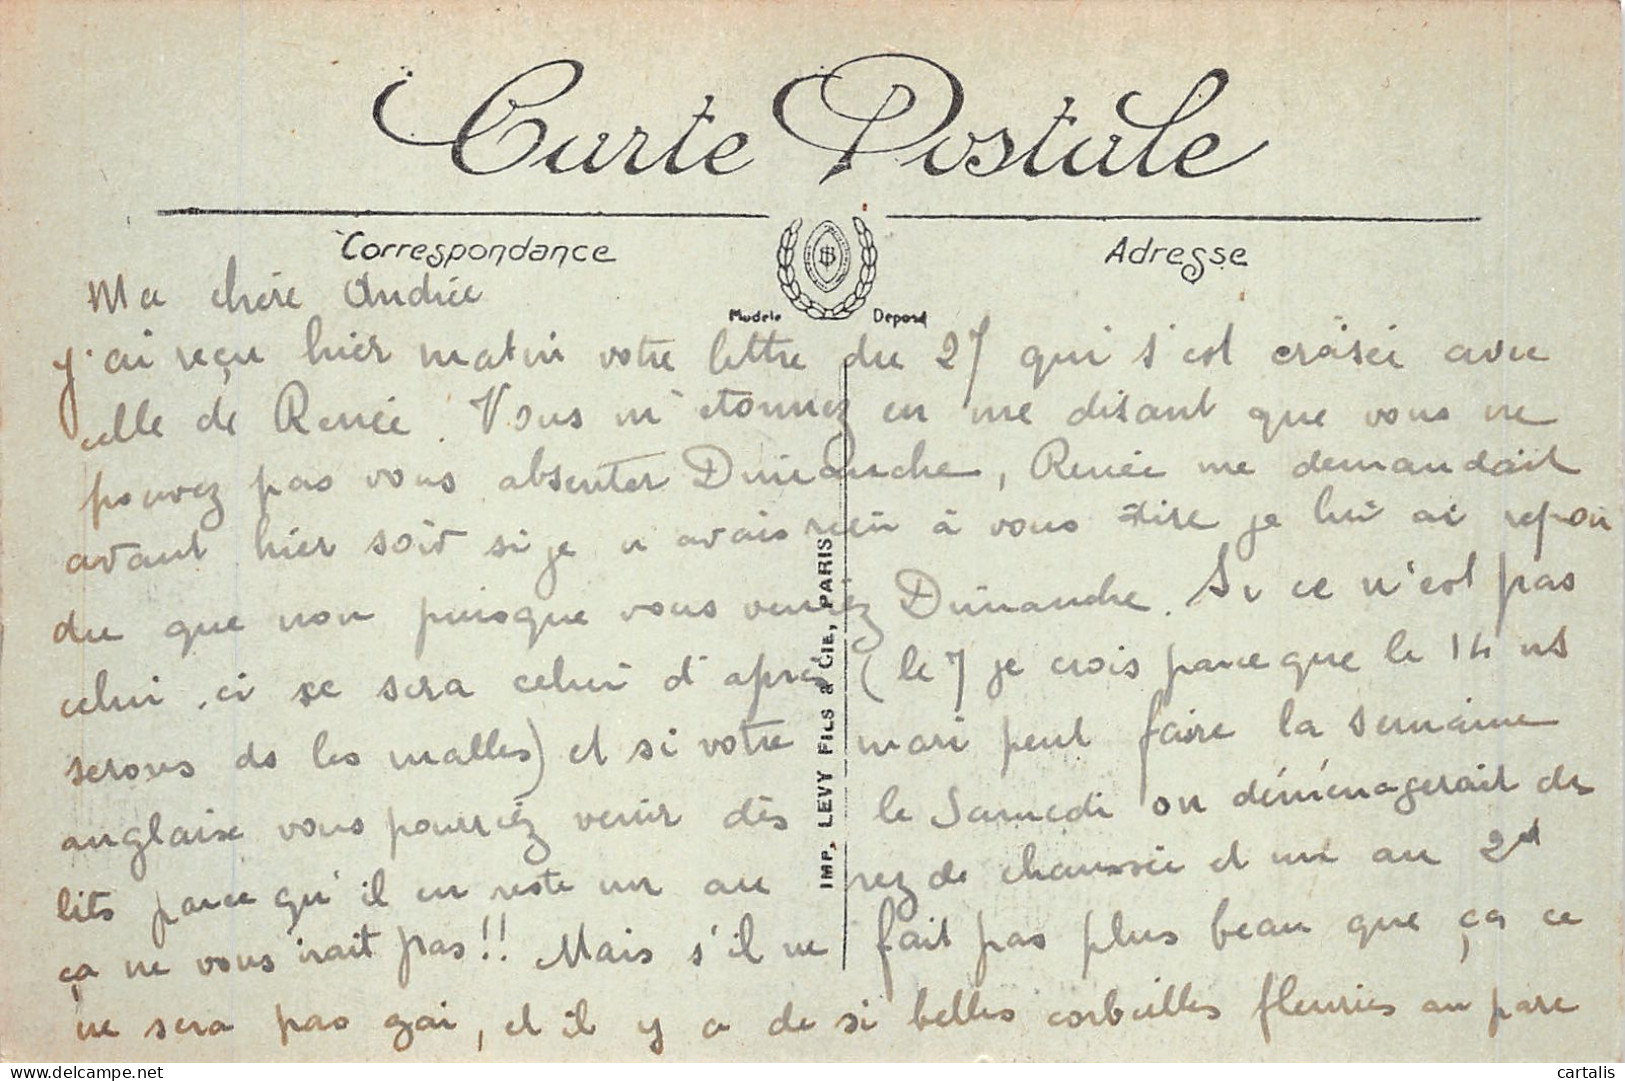 Carte Postale
Correspondance
Adresse
Modèle Déposé
Ma chère Andrée
j'ai reçu hier matin votre lettre du 27 qui s'est croisée avec
celle de Renée. Vous m'étonnez en me disant que vous ne
pouvez pas vous absenter Dimanche, Renée me demandait
avant hier soir si je n avais rien à vous dire je lui ai répon
du que non puisque vous veniez Dimanche. Si ce n'est pas
celui ci ce sera celui d'après (le 7 je crois parce que le 14 ns
serons ds les malles) et si votre mari peut faire la semaine
anglaise vous pourriez venir dès le Samedi on déménagerait des
lits parce qu'il en reste un au rez de chaussée et un au 2nd
ça ne vous irait pas!! Mais s'il ne fait pas plus beau que ça ce
ne sera pas gai, et il y a de si belles corbeilles fleuries au parc
IMP. LEVY FILS & CIE, PARIS
delcampe.net
cartalis